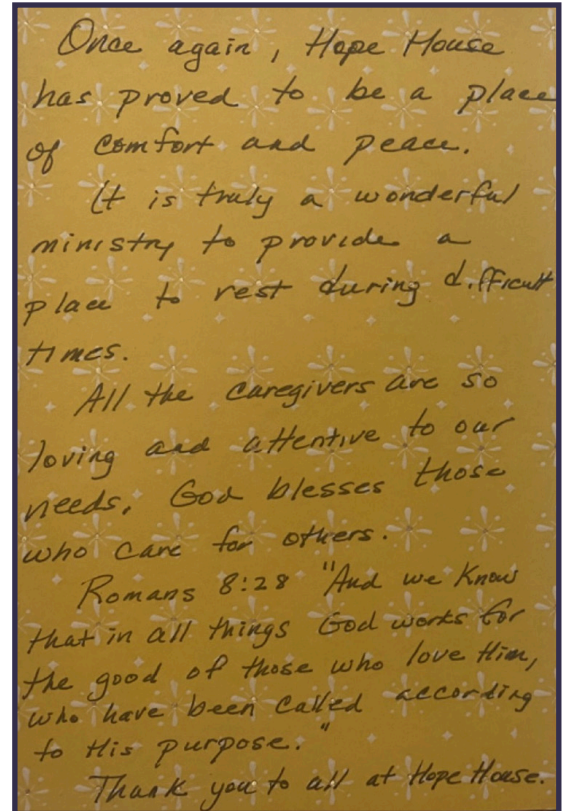 Once again, Hope House
has proved to be a place
of comfort and peace.
It is truly a wonderful
ministry to provide a
place to rest during difficult
times.
All the caregivers are so
loving and attentive to our
needs. God blesses those
who care for others.
Romans 8:28 "And we know
that in all things God works for
the good of those who love Him,
who have been called according
to His purpose."
Thank you to all at Hope House.